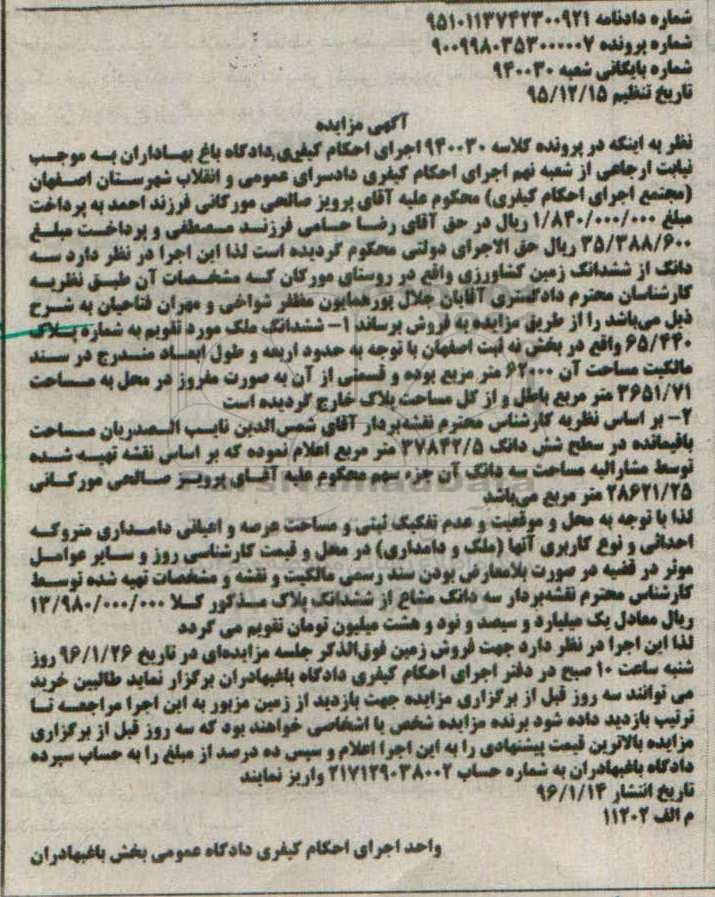 شماره دادنامه ۹۵۱۰۱۱۳۷۴۲۳۰۰۹۲۱
شماره پرونده ۹۰۰۹۹۸۰۳۵۳۰۰۰۰۰۷
شماره بایگانی شعبه ۹۴۰۰۳۰
تاریخ تنظیم ۹۵/۱۲/۱۵
آگهی مزایده
نظر به اینکه در پرونده کلاسه ۹۴۰۰۳۰ اجرای احکام کیفری دادگاه باغ بهاداران به موجب
نیابت ارجاعی از شعبه نهم اجرای احکام کیفری دادسرای عمومی و انقلاب شهرستان اصفهان
(مجتمع اجرای احکام کیفری) محکوم علیه آقای پرویز صالحی مورکانی فرزند احمد به پرداخت
مبلغ ۱/۸۴۰/۰۰۰/۰۰۰ ریال در حق آقای رضا حسامی فرزند مصطفی و پرداخت مبلغ
۳۵/۳۸۸/۶۰۰ ریال حق الاجرای دولتی محکوم گردیده است لذا این اجرا در نظر دارد سه
دانگ از ششدانگ زمین کشاورزی واقع در روستای مورکان که مشخصات آن طبق نظریه
کارشناسان محترم دادگستری آقایان جلال پورهمایون مظفر شواخی و مهران فتاحیان به شرح
ذیل می‌باشد را از طریق مزایده به فروش برساند ۱- ششدانگ ملک مورد تقویم به شماره پلاک
۶۵/۴۴۰ واقع در بخش نه ثبت اصفهان با توجه به حدود اربعه و طول ابعاد مندرج در سند
مالکیت مساحت آن ۶۲۰۰۰ متر مربع بوده و قسمتی از آن به صورت مفروز در محل به مساحت
۳۶۵۱/۷۱ متر مربع باطل و از کل مساحت پلاک خارج گردیده است
۲- بر اساس نظریه کارشناس محترم نقشه‌بردار آقای شمس‌الدین نایب الصدریان مساحت
باقیمانده در سطح شش دانگ ۳۷۸۴۲/۵ متر مربع اعلام نموده که بر اساس نقشه تهیه شده
توسط مشارالیه مساحت سه دانگ آن جزء سهم محکوم علیه آقای پرویز صالحی مورکانی
۲۸۶۲۱/۲۵ متر مربع می‌باشد
لذا با توجه به محل و موقعیت و عدم تفکیک ثبتی و مساحت عرصه و اعیانی دامداری متروکه
احداثی و نوع کاربری آنها (ملک و دامداری) در محل و قیمت کارشناسی روز و سایر عوامل
موثر در قضیه در صورت بلامعارض بودن سند رسمی مالکیت و نقشه و مشخصات تهیه شده توسط
کارشناس محترم نقشه‌بردار سه دانگ مشاع از ششدانگ پلاک مذکور کلا ۱۳/۹۸۰/۰۰۰/۰۰۰
ریال معادل یک میلیارد و سیصد و نود و هشت میلیون تومان تقویم می گردد
لذا این اجرا در نظر دارد جهت فروش زمین فوق‌الذکر جلسه مزایده‌ای در تاریخ ۹۶/۱/۲۶ روز
شنبه ساعت ۱۰ صبح در دفتر اجرای احکام کیفری دادگاه باغبهادران برگزار نماید طالبین خرید
می توانند سه روز قبل از برگزاری مزایده جهت بازدید از زمین مزبور به این اجرا مراجعه تا
ترتیب بازدید داده شود برنده مزایده شخص یا اشخاصی خواهند بود که سه روز قبل از برگزاری
مزایده بالاترین قیمت پیشنهادی را به این اجرا اعلام و سپس ده درصد از مبلغ را به حساب سپرده
دادگاه باغبهادران به شماره حساب ۲۱۷۱۲۹۰۳۸۰۰۲ واریز نمایند
تاریخ انتشار ۹۶/۱/۱۴
م الف ۱۱۲۰۲
واحد اجرای احکام کیفری دادگاه عمومی بخش باغبهادران